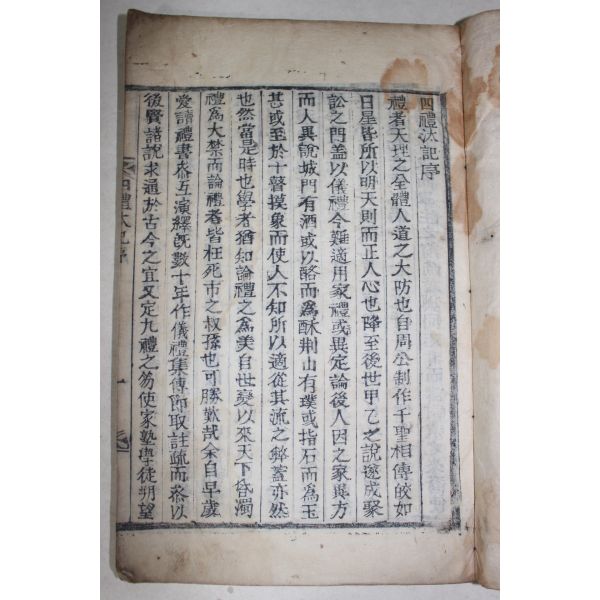 四禮汰記序
禮者天理之全體人道之大防也自周公制作千聖相傳皎如
日星皆所以明天則而正人心也降至後世甲乙之說遂成聚
訟之門盖以儀禮今難適用家禮或異定論後人因之家異方
而人異說城門有酒或以酪而爲酥荆山有璞或指石而爲玉
甚或至於十瞽摸象而使人不知所以適從其流之弊蓋亦然
也然當是時也學者猶知論禮之爲美自世變以來天下昏濁
禮爲大禁而論禮者皆枉死市之叔孫也可勝歎哉余自早歲
愛讀禮書叅互演繹旣數十年作儀禮集傳卽取註疏而叅以
後賢諸說求通於古今之宜又定九禮之笏使家塾學徒朔望
四禮汰記序
一